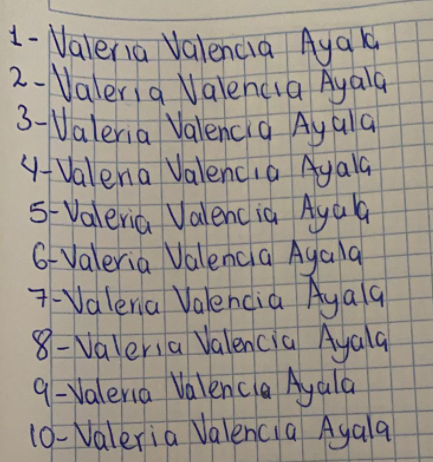 1- Valeria Valencia Ayala
2- Valeria Valencia Ayala
3- Valeria Valencia Ayala
4- Valeria Valencia Ayala
5- Valeria Valencia Ayala
6- Valeria Valencia Ayala
7- Valeria Valencia Ayala
8- Valeria Valencia Ayala
9- Valeria Valencia Ayala
10- Valeria Valencia Ayala